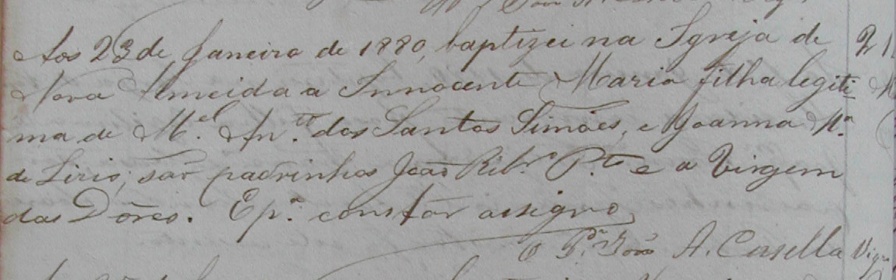 Aos 23 de Janeiro de 1880, baptizei na Igreja de
Nova Almeida a Innocente Maria filha legiti
ma de M.el An.to dos Santos Simões, e Joanna M.a
do Lirio; são padrinhos João Rib.ro P.to e a Virgem
das Dôres. E p.a constar assigno
O P.e João A. Casella Vig